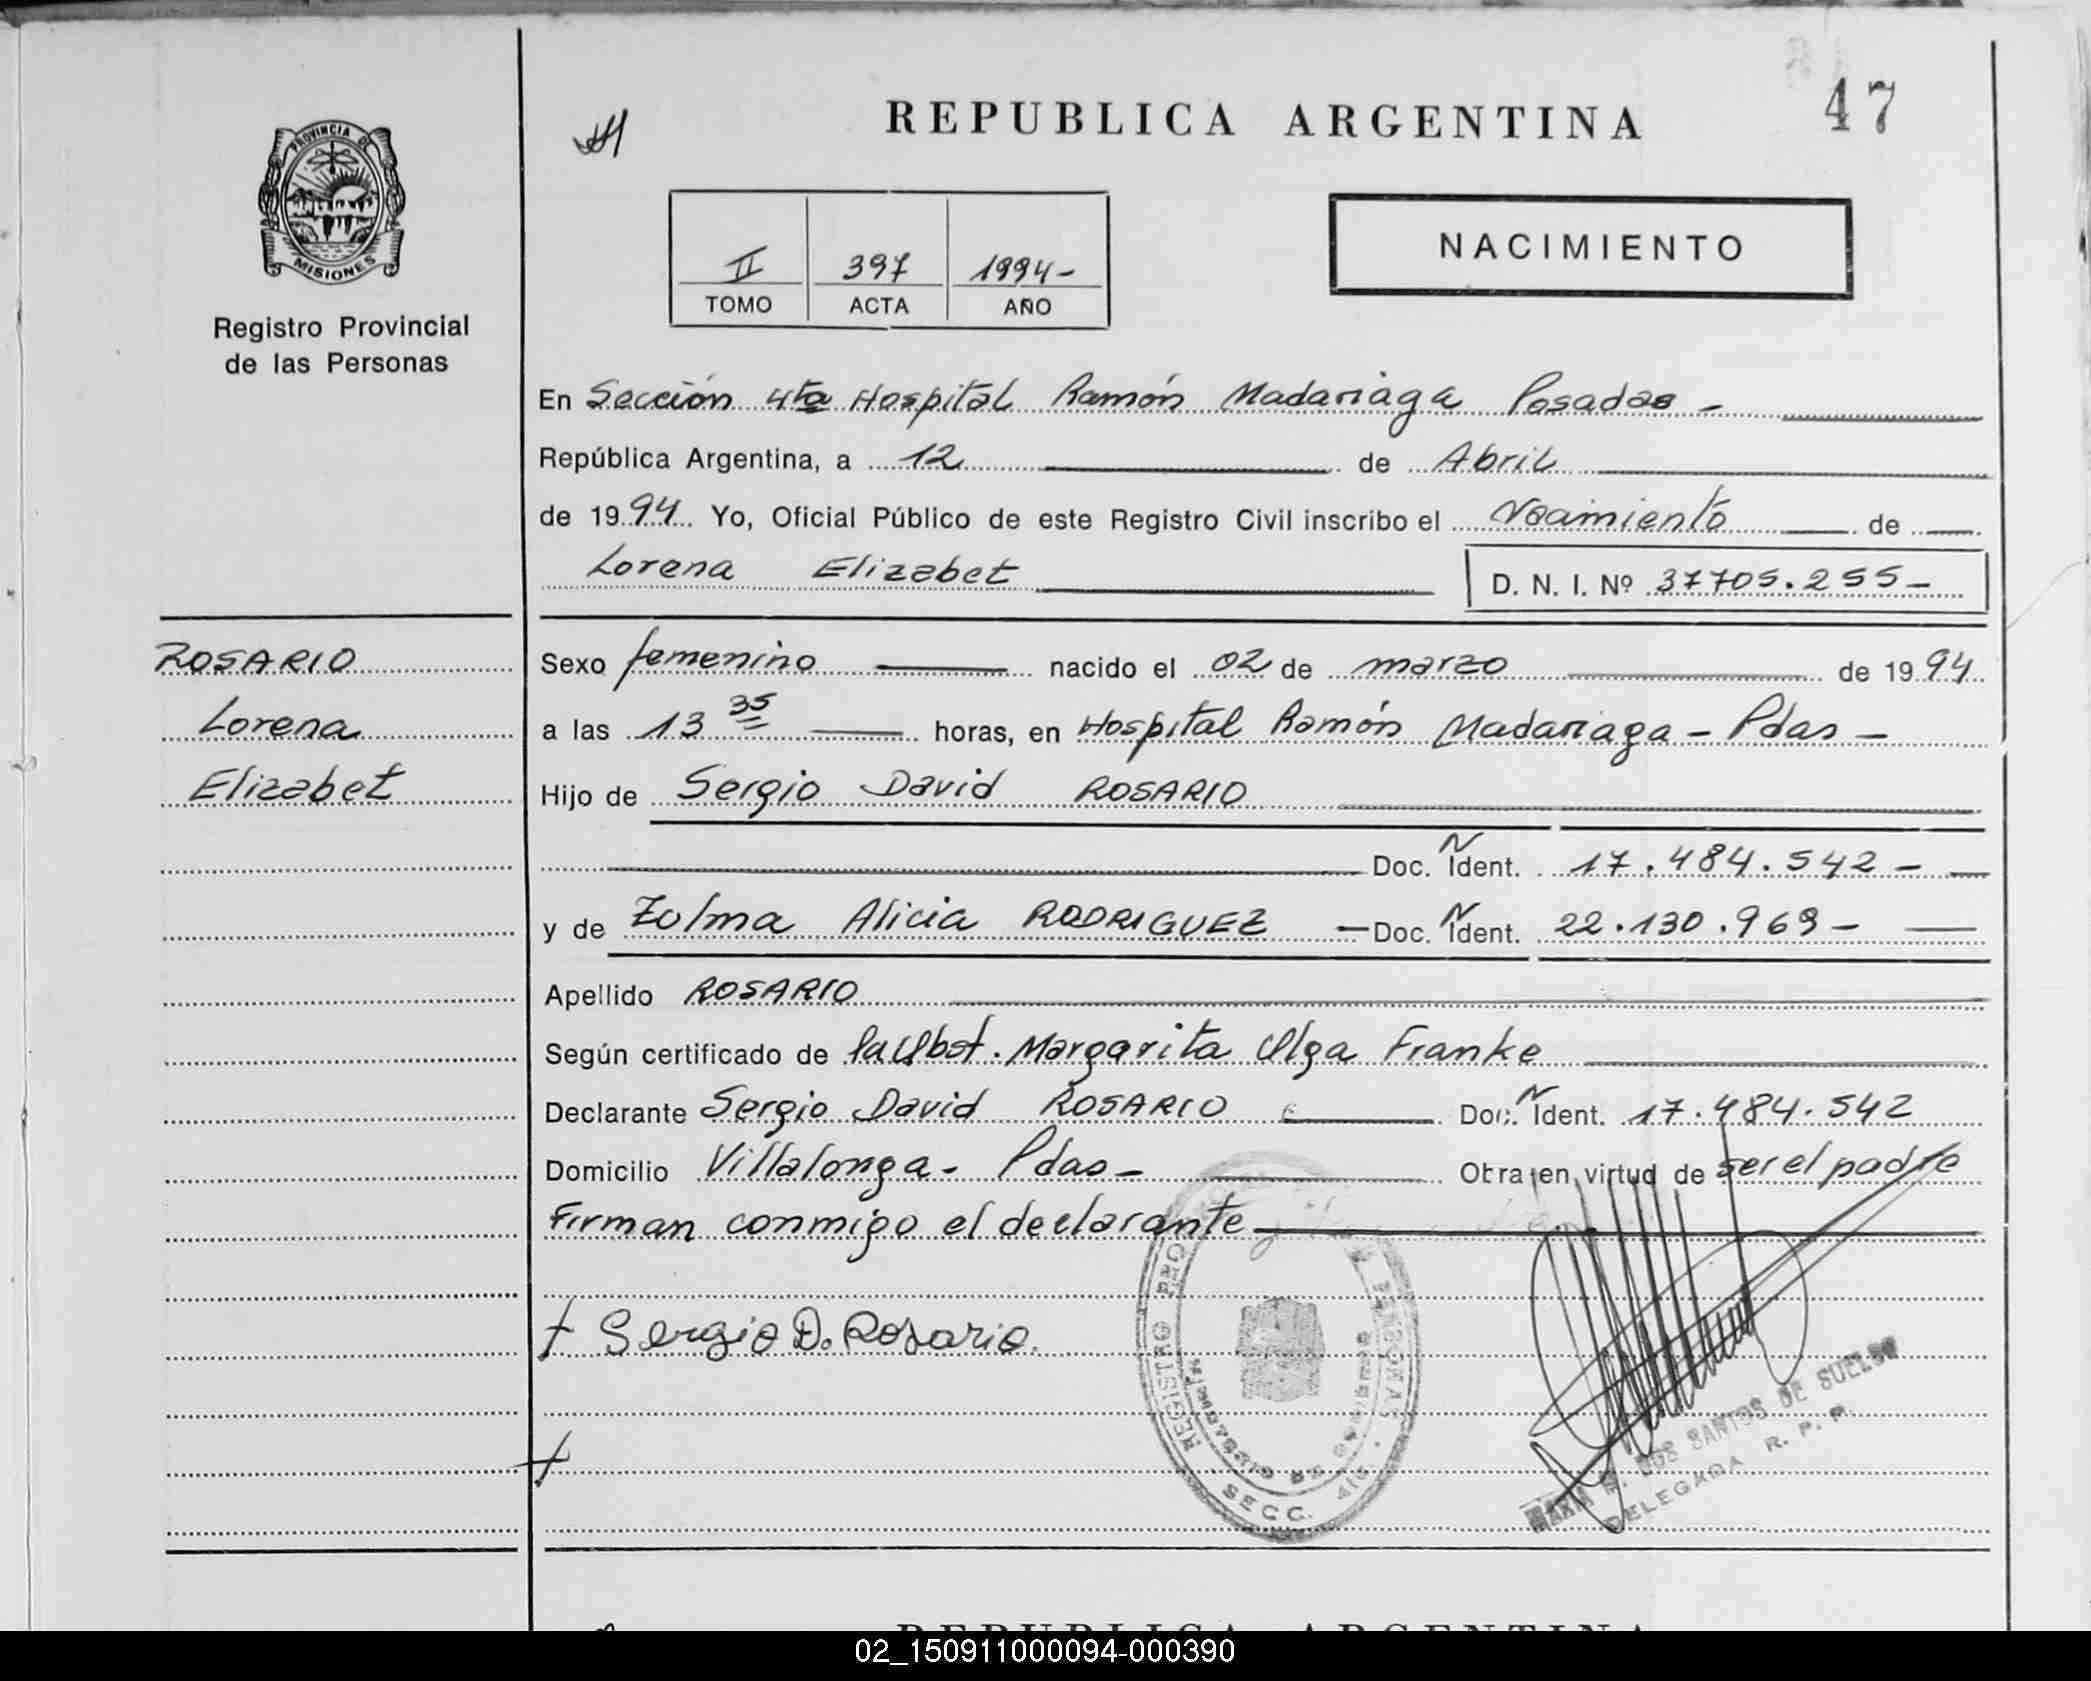 47
REPUBLICA ARGENTINA
PROVINCIA DE
MISIONES
Registro Provincial
de las Personas
II 397 1994-
TOMO ACTA AÑO
NACIMIENTO
En Sección 4ta Hospital Ramón Madariaga Posadas -
República Argentina, a 12 de Abril
de 1994. Yo, Oficial Público de este Registro Civil inscribo el Nacimiento de
Lorena Elizabet D. N. I. Nº 37705.255-
ROSARIO
Lorena
Elizabet
Sexo femenino nacido el 02 de marzo de 1994
a las 13 35 horas, en Hospital Ramón Madariaga - Pdas -
Hijo de Sergio David ROSARIO
Doc. N Ident. 17.484.542 -
y de Zulma Alicia RODRIGUEZ - Doc. N Ident. 22.130.969 -
Apellido ROSARIO
Según certificado de la Obst. Margarita Olga Franke
Declarante Sergio David ROSARIO Doc. N Ident. 17.484.542
Domicilio Villalonga - Pdas - Obra en virtud de ser el padre
Firman conmigo el declarante
Sergio D. Rosario.
REGISTRO PERSONAS
SECC. 4ta
DOS SANTOS DE SUELDO
DELEGADA R. P. P.
REPUBLICA ARGENTINA
02_150911000094-000390